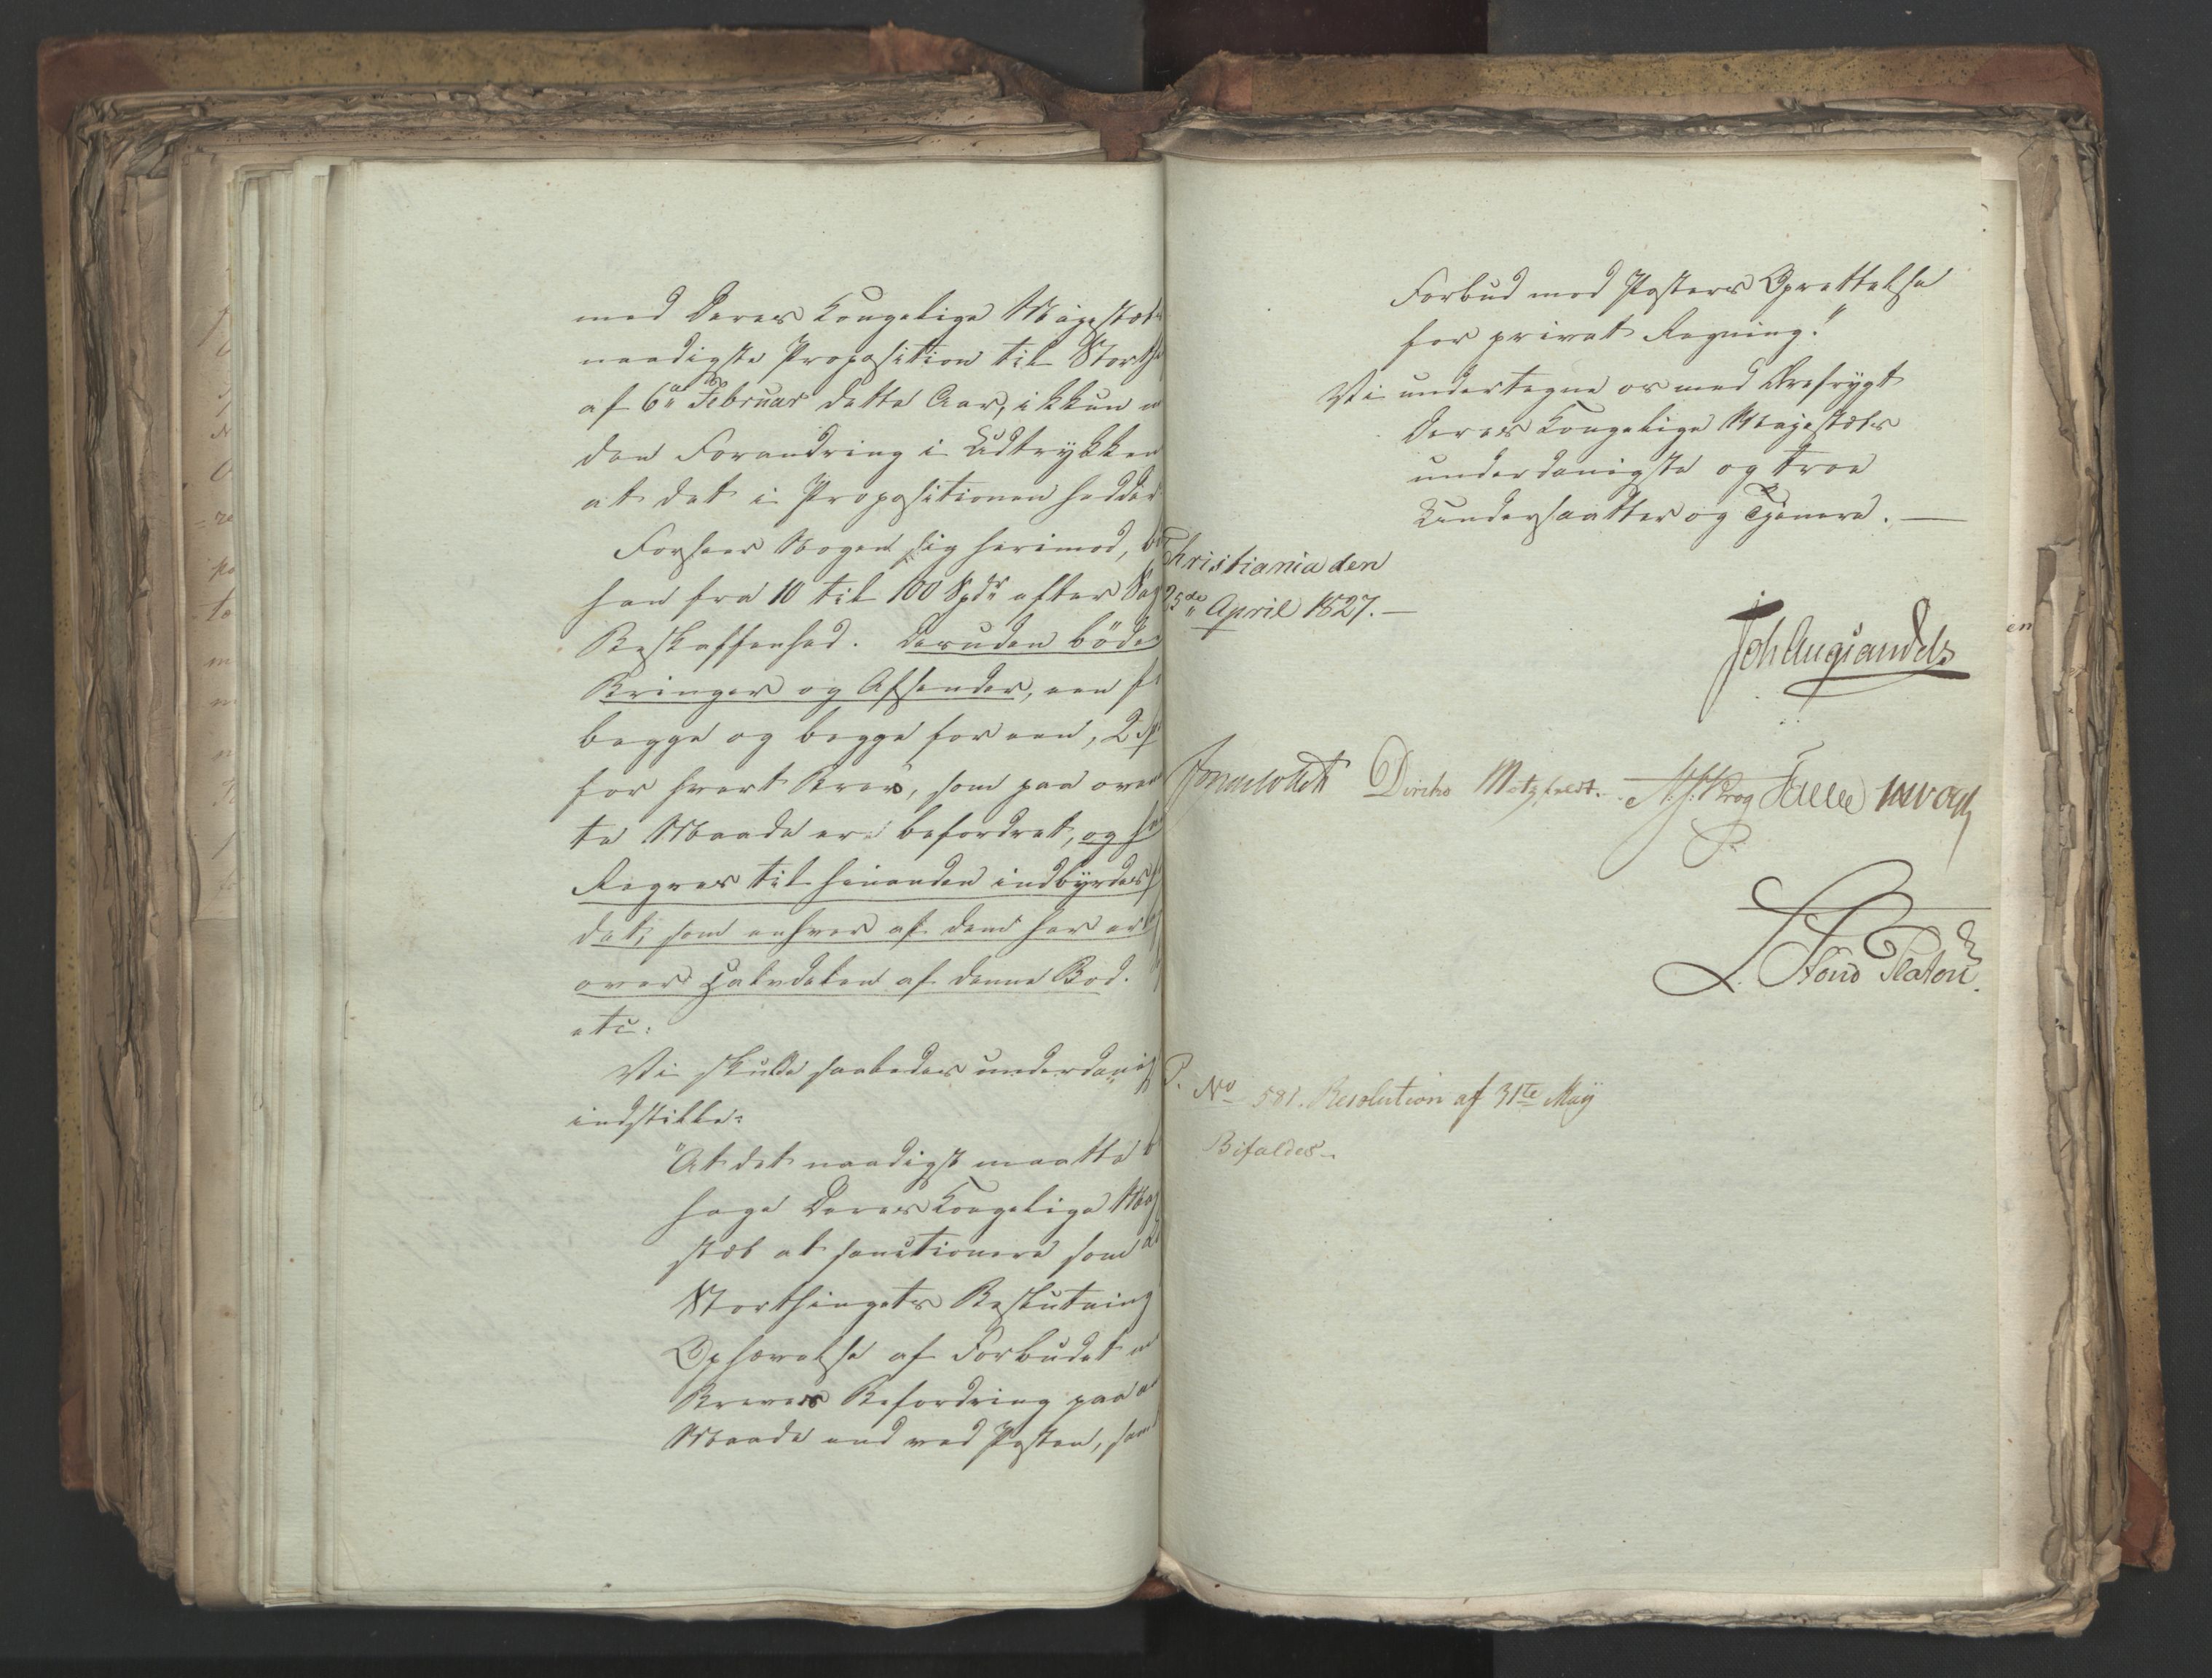 med Deres Kongelige Majestæts
naadigste Proposition til Storth
af 6te Februar dette Aar, ikkun m
den Forandring i Udtrykken
at det i Propositionen hedder
Forseer Nogen sig herimod, bø
han fra 10 til 100 Spdr efter Sag
Beskaffenhed. Desuden böde
Bringer og Afsender, een f
begge og begge for een, 2 Sp
for hvert Brev, som paa oven
te Maade er befordret, og ha
Regres til hinanden indbyrdes f
det, som enhver af dem har erl
over Halvdelen af denne Bod.
etc:
Vi skulle saaledes underdanigst
indstille:
"At det naadigst maatte b
hage Deres Kongelige Maj
stæt at sanctionere som L
Storthingets Beslutning
Ophævelse af Forbudet m
Breves Befordring paa a
Maade end ved Posten, sam
Forbud mod Posters Oprettelse
for privat Regning."
Vi undertegne os med Ærefrygt
Deres Kongelige Majestæts
underdanigste og troe
Undersaatter og Tjenere. —
Christiania den
25de April 1827. —
Joh Aug Sandels
J Collett Diriks Motzfeldt. N.J. Krog Fasting JH Vogt
L. Stoud Platou.
P. No 581. Resolution af 31te Maij
Bifaldes.